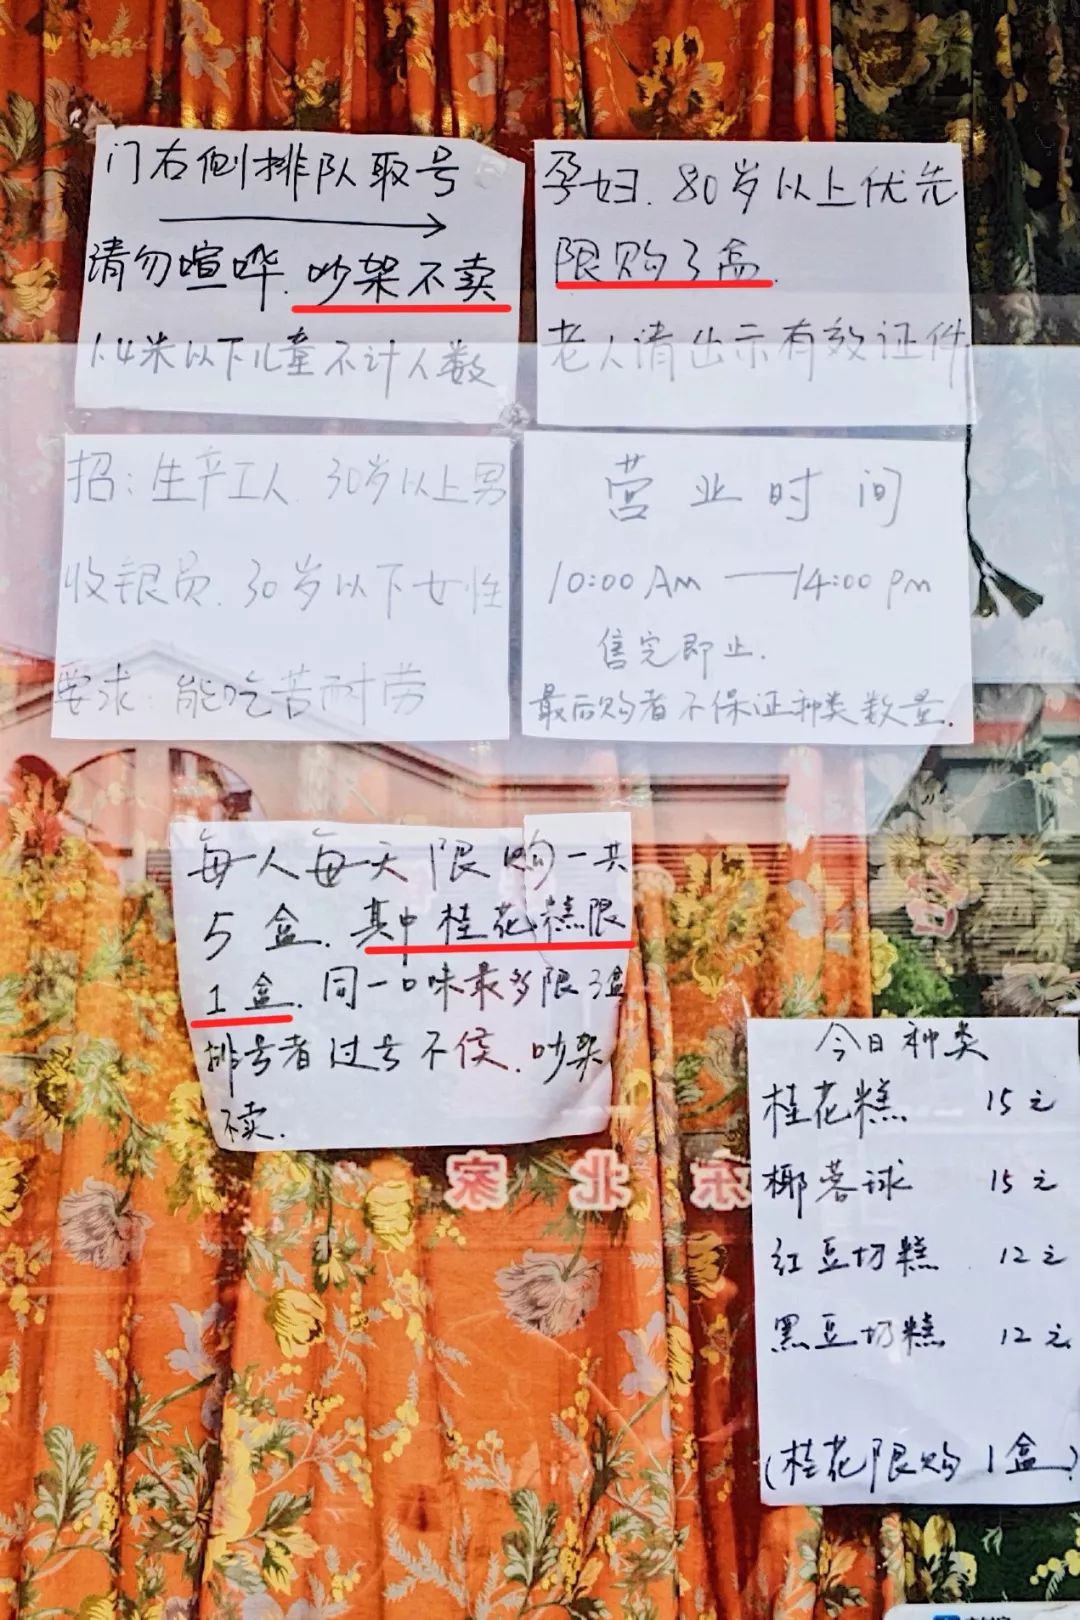 门右侧排队取号
请勿喧哗.吵架不卖
1.4米以下儿童不计人数
孕妇.80岁以上优先
限购3盒.
老人请出示有效证件
招:生产工人.30岁以上男
收银员.30岁以下女性
要求:能吃苦耐劳
营业时间
10:00 Am —14:00 pm
售完即止.
最后购者不保证种类数量.
每人每天限购一共
5盒.其中桂花糕限
1盒.同一口味最多限3盒
排号者过号不候.吵架
不卖.
东北家
今日种类
桂花糕 15元
椰蓉球 15元
红豆切糕 12元
黑豆切糕 12元
(桂花限购1盒)